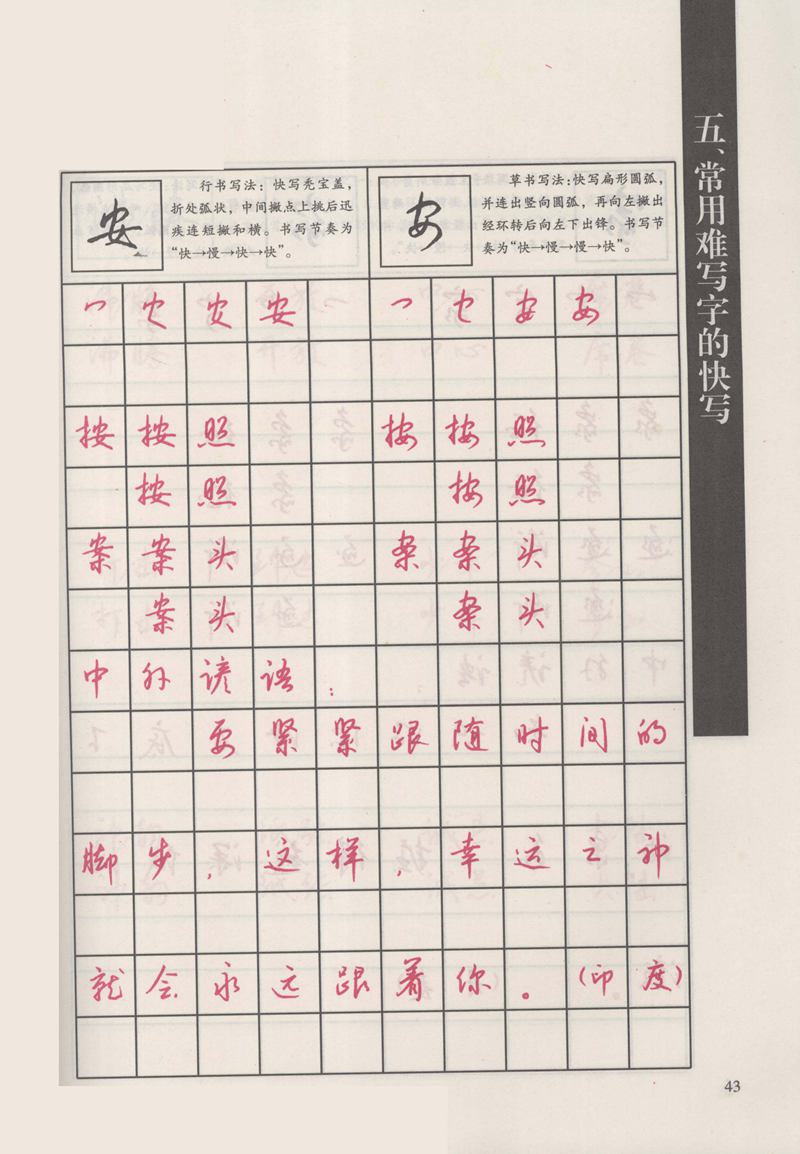 五、常用难写字的快写
安
行书写法：快写秃宝盖，
折处弧状，中间撇点上挑后迅
疾连短撇和横。书写节奏为
“快→慢→快→快”。
安
草书写法:快写扁形圆弧，
并连出竖向圆弧，再向左撇出
经环转后向左下出锋。书写节
奏为“快→慢→慢→快”。
安 安
按 按 照 按 按 照
按 照 按 照
案 案 头 案 案 头
案 头 案 头
中 外 谚 语 ：
要 紧 紧 跟 随 时 间 的
脚 步 ， 这 样 ， 幸 运 之 神
就 会 永 远 跟 着 你 。 （印 度）
43